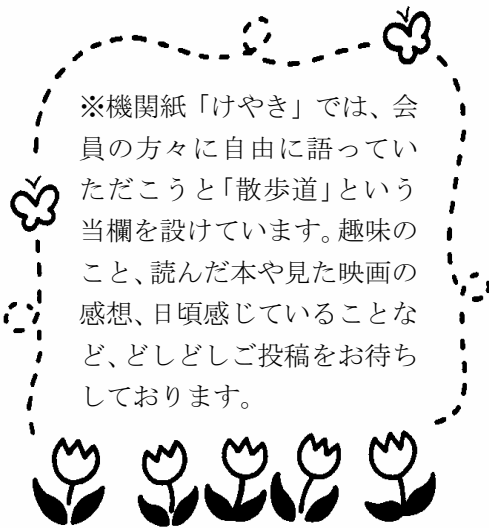 ※機関紙「けやき」では、会
員の方々に自由に語ってい
ただこうと「散歩道」という
当欄を設けています。趣味の
こと、読んだ本や見た映画の
感想、日頃感じていることな
ど、どしどしご投稿をお待ち
しております。